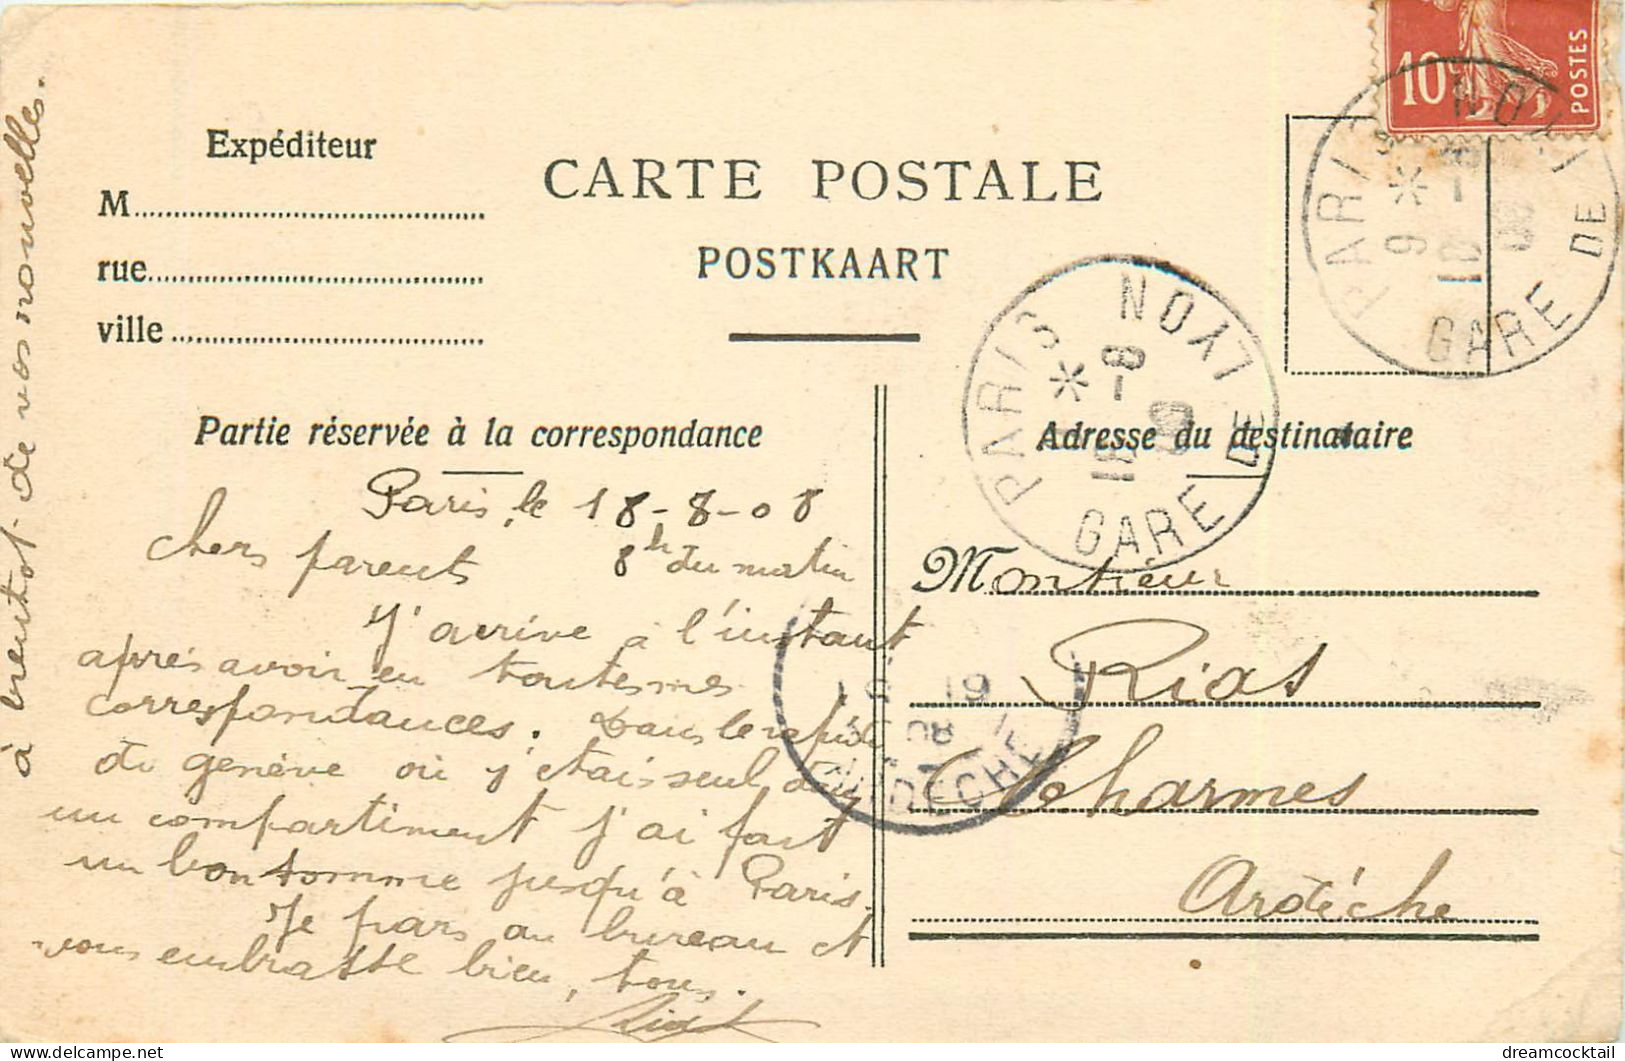 10c
POSTES
PARIS GARE DE LYON
9 * 18 - 8 08
Expéditeur
M
rue
ville
CARTE POSTALE
POSTKAART
PARIS GARE DE LYON
* 18 - 8
Partie réservée à la correspondance
Adresse du destinataire
Paris, le 18-8-08
8h du matin
Chers parents
J'arrive à l'instant
après avoir eu toutes mes
correspondances. Dans le rapide
de genève où j'étais seul dans
un compartiment j'ai fait
un bon somme jusqu'à Paris.
Je pars au bureau et
vous embrasse bien, tous.
Rias
à bientôt de vos nouvelles.
Monsieur
Rias
Charmes
Ardèche
19
08
ARDECHE
dreamcocktail